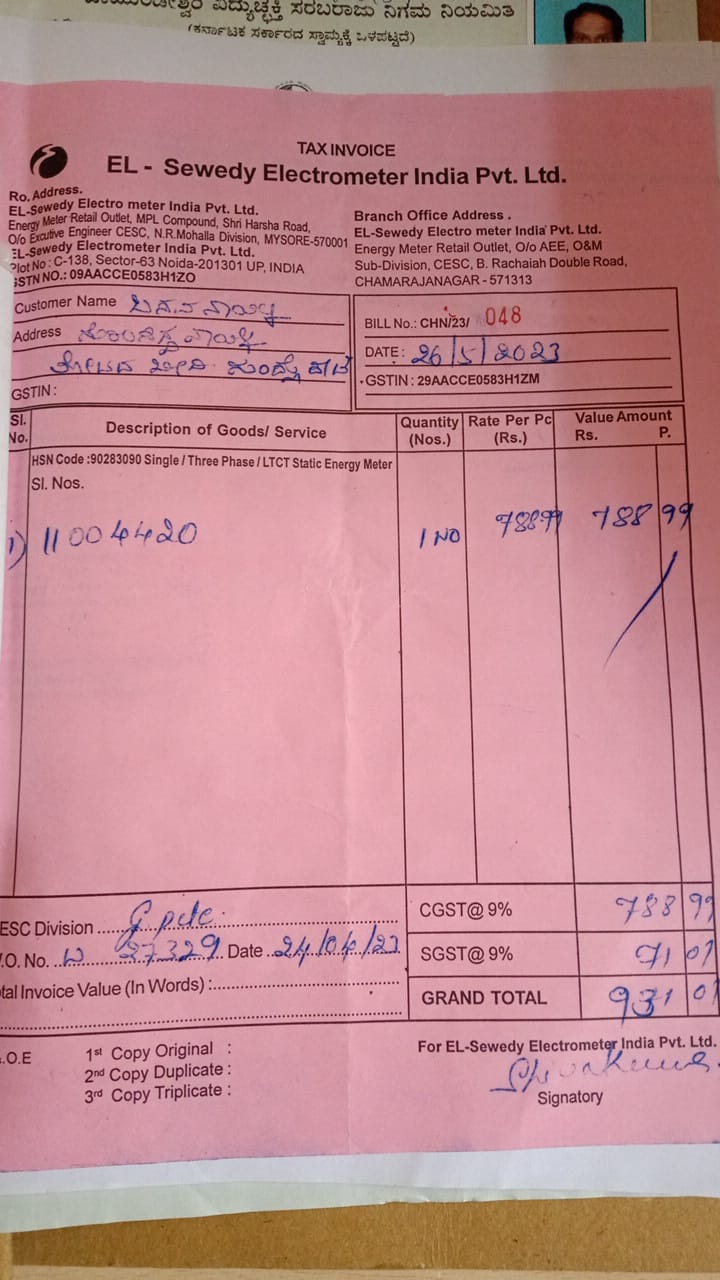 ವಿದ್ಯುಚ್ಛಕ್ತಿ ಸರಬರಾಜು ನಿಗಮ ನಿಯಮಿತ
(ಕರ್ನಾಟಕ ಸರ್ಕಾರದ ಸ್ವಾಮ್ಯಕ್ಕೆ ಒಳಪಟ್ಟಿದೆ)
TAX INVOICE
EL - Sewedy Electrometer India Pvt. Ltd.
Ro. Address.
EL-Sewedy Electro meter India Pvt. Ltd.
Energy Meter Retail Outlet, MPL Compound, Shri Harsha Road,
O/o Excutive Engineer CESC, N.R.Mohalla Division, MYSORE-570001
EL-Sewedy Electrometer India Pvt. Ltd.
Plot No : C-138, Sector-63 Noida-201301 UP, INDIA
GSTN NO.: 09AACCE0583H1ZO
Branch Office Address .
EL-Sewedy Electro meter India Pvt. Ltd.
Energy Meter Retail Outlet, O/o AEE, O&M
Sub-Division, CESC, B. Rachaiah Double Road,
CHAMARAJANAGAR - 571313
Customer Name
Address
GSTIN :
BILL No.: CHN/23/ 048
DATE : 26/5/2023
GSTIN : 29AACCE0583H1ZM
Sl. No. Description of Goods/ Service Quantity (Nos.) Rate Per Pc (Rs.) Value Amount Rs. P.
HSN Code :90283090 Single / Three Phase / LTCT Static Energy Meter
Sl. Nos.
1) 11004420 1 NO 788.99 788 99
ESC Division ..... G pete.
CGST@ 9% 788 99
.O. No. .. 27329 Date 24/04/23
SGST@ 9% 71 01
tal Invoice Value (In Words) :
GRAND TOTAL 931 01
.O.E
1st Copy Original :
2nd Copy Duplicate :
3rd Copy Triplicate :
For EL-Sewedy Electrometer India Pvt. Ltd.
Signatory